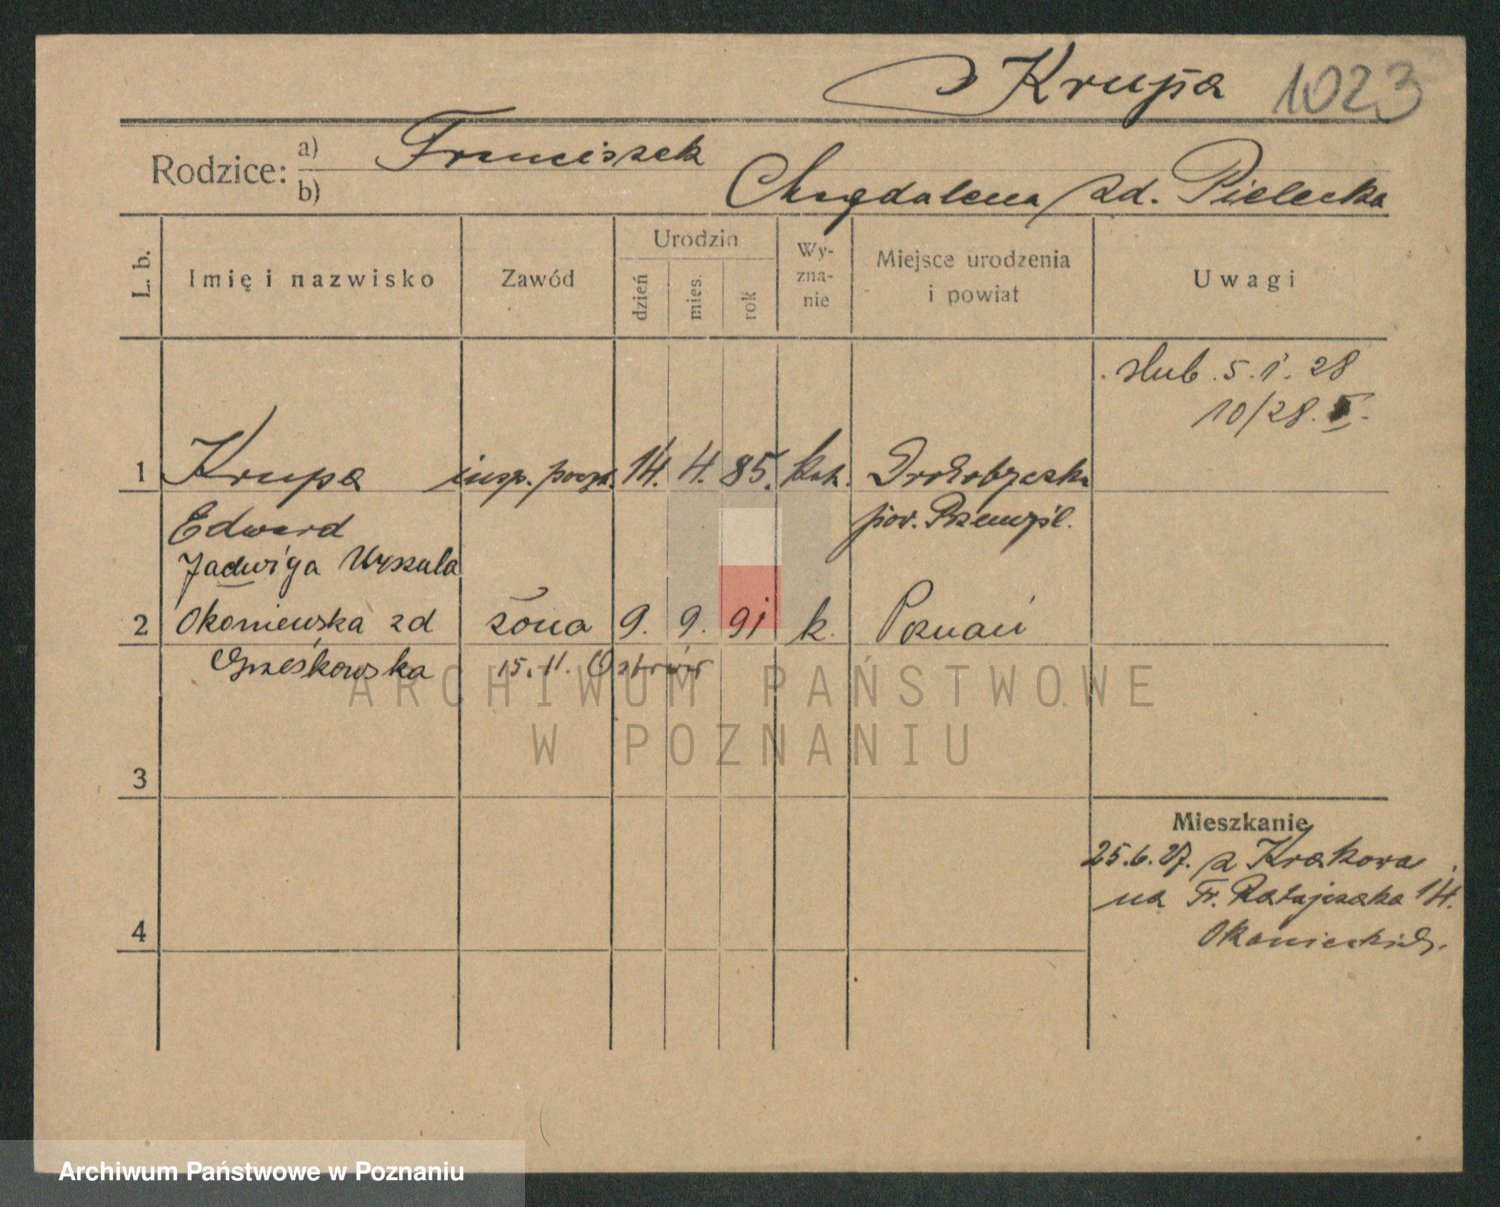 Krupa 1023
Rodzice: a) Franciszek
b) Magdalena zd. Pielecka
L. b.
Imię i nazwisko
Zawód
Urodzin
dzień
mies.
rok
Wy-
zna-
nie
Miejsce urodzenia
i powiat
Uwagi
ślub 5. 1. 28
10/28.
1 Krupa insp. poczt. 14. 4. 85. kat.
Edward pow. Przemyśl.
Jadwiga Urszula
2 Okoniewska zd żona 9. 9. 91 k. Poznań
15. 11. Ostrów
3
4
Mieszkanie
25.6.27. z Krakowa
na Fr. Ratajczaka 14.
ARCHIWUM PAŃSTWOWE
W POZNANIU
Archiwum Państwowe w Poznaniu